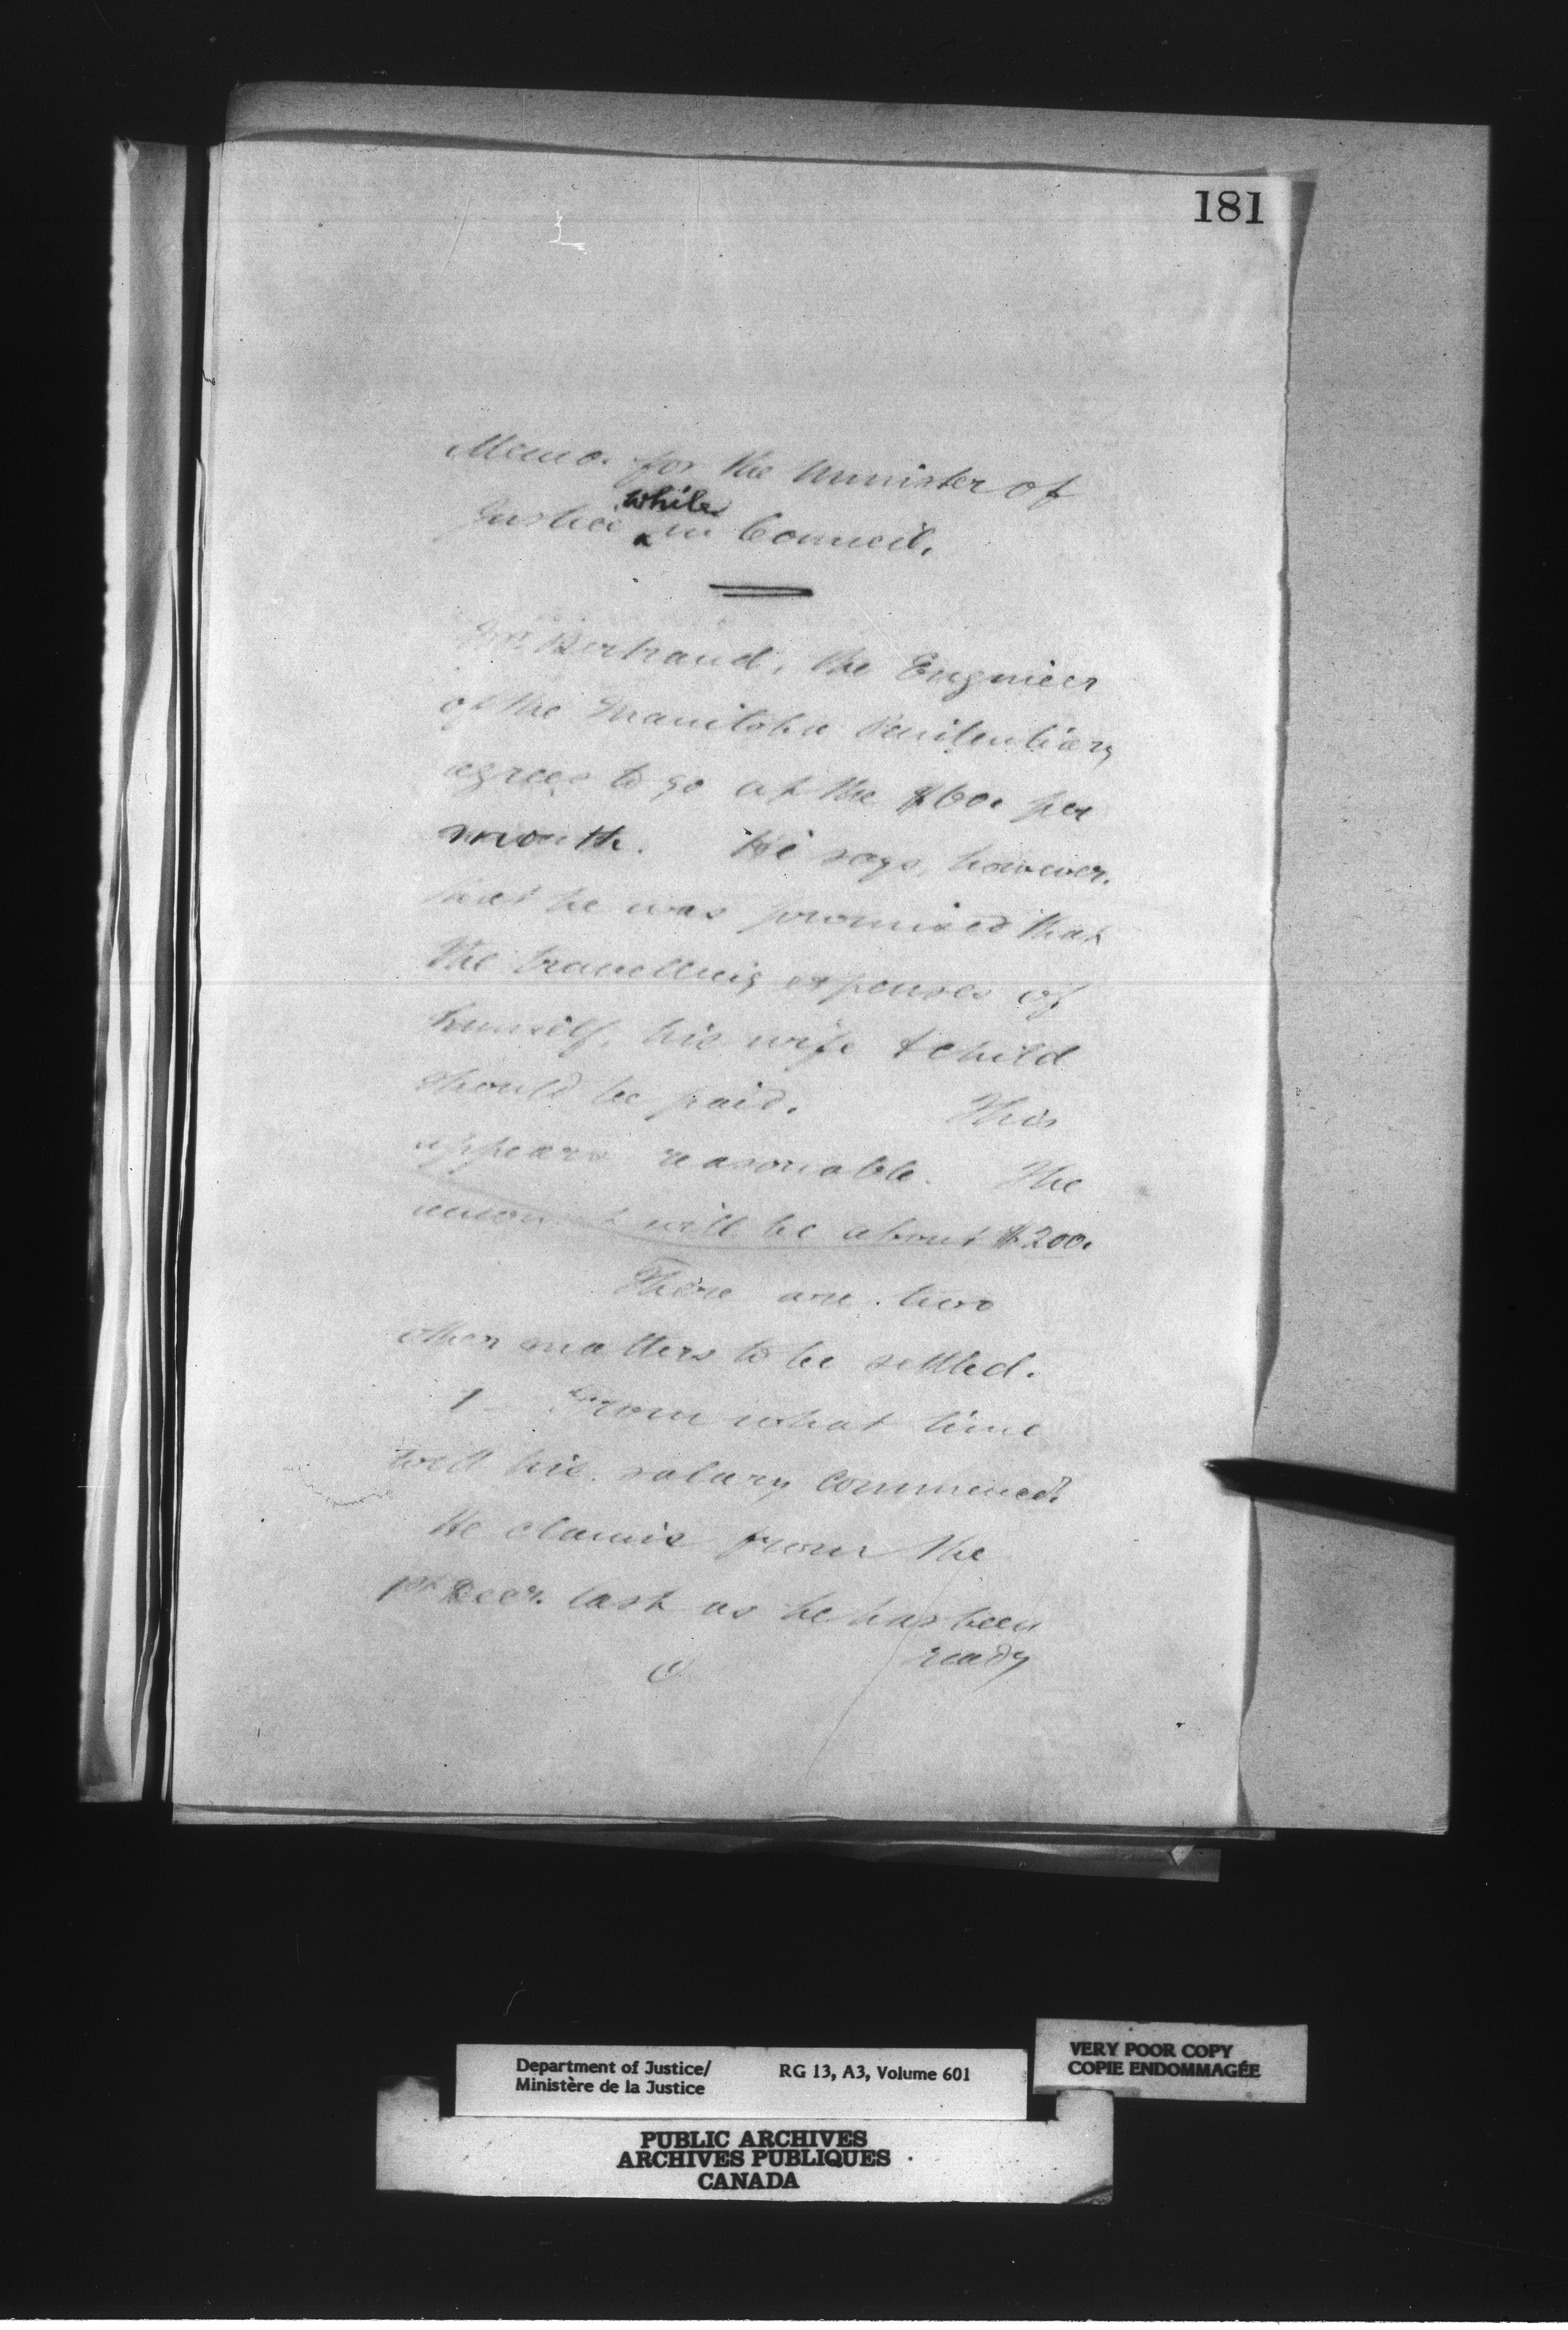 181
Memo. for the Minister of
Justice while in Council.
Mr Bertrand, the Engineer
of the Manitoba Penitentiary
agrees to go at the $60. per
month. He says, however,
that he was promised that
the travelling expenses of
himself, his wife & child
should be paid. This
appears reasonable. The
amount will be about $200.
There are two
other matters to be settled.
1 - From what time
will his salary commence?
He claims from the
1st Decr. last as he has been
ready
Department of Justice/
Ministère de la Justice
RG 13, A3, Volume 601
VERY POOR COPY
COPIE ENDOMMAGÉE
PUBLIC ARCHIVES
ARCHIVES PUBLIQUES
CANADA